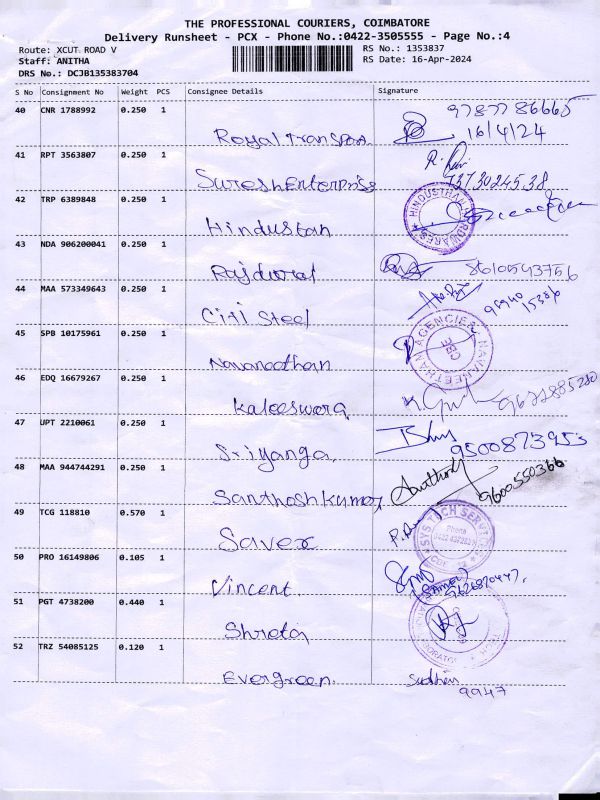 THE PROFESSIONAL COURIERS, COIMBATORE
Delivery Runsheet - PCX - Phone No.:0422-3505555 - Page No.:4
Route: XCUT ROAD V RS No.: 1353837
Staff: ANITHA RS Date: 16-Apr-2024
DRS No.: DCJB135383704
S No Consignment No Weight PCS Consignee Details Signature
40 CNR 1788992 0.250 1
Royal Transport 16/4/24
41 RPT 3563807 0.250 1
Suresh Enterprises
42 TRP 6389848 0.250 1 HINDUSTHAN HARDWARES
Hindustan
43 NDA 906200041 0.250 1
Rajdurai 8610543756
44 MAA 573349643 0.250 1
Citi Steel
45 SPB 10175961 0.250 1 NAVANEETHAN AGENCIES CBE
Navaneethan
46 EDQ 16679267 0.250 1
Kaleeswara
47 UPT 2210061 0.250 1
Sriyanga 9500873953
48 MAA 944744291 0.250 1
Santhosh Kumar 9600550366
49 TCG 118810 0.570 1 SYS TECH SERVICE
Savex Phone
50 PRO 16149806 0.105 1
Vincent
51 PGT 4738200 0.440 1
52 TRZ 54085125 0.120 1
Evergreen
9947